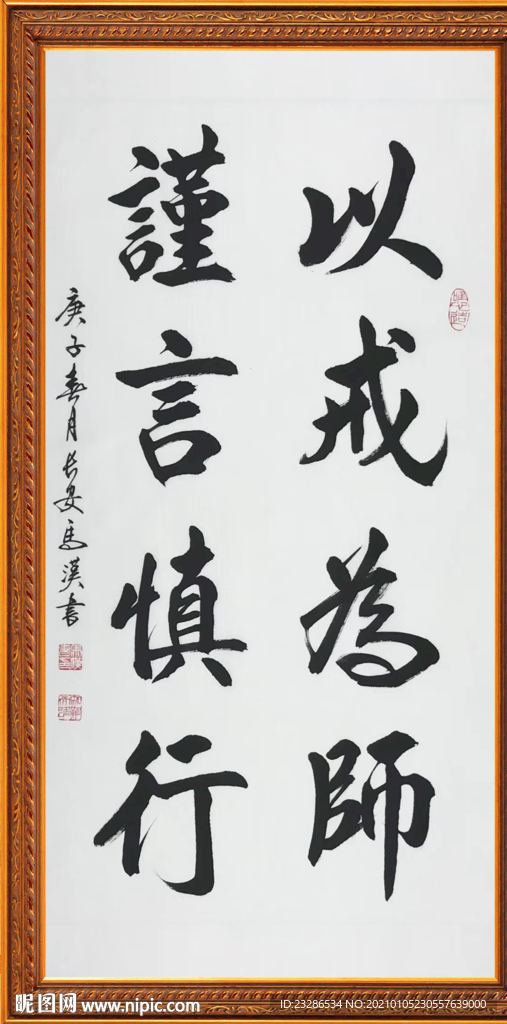 以戒為師
謹言慎行
庚子春月長安馬漢書
昵图网 www.nipic.com
ID:23286534 NO:20210105230557639000